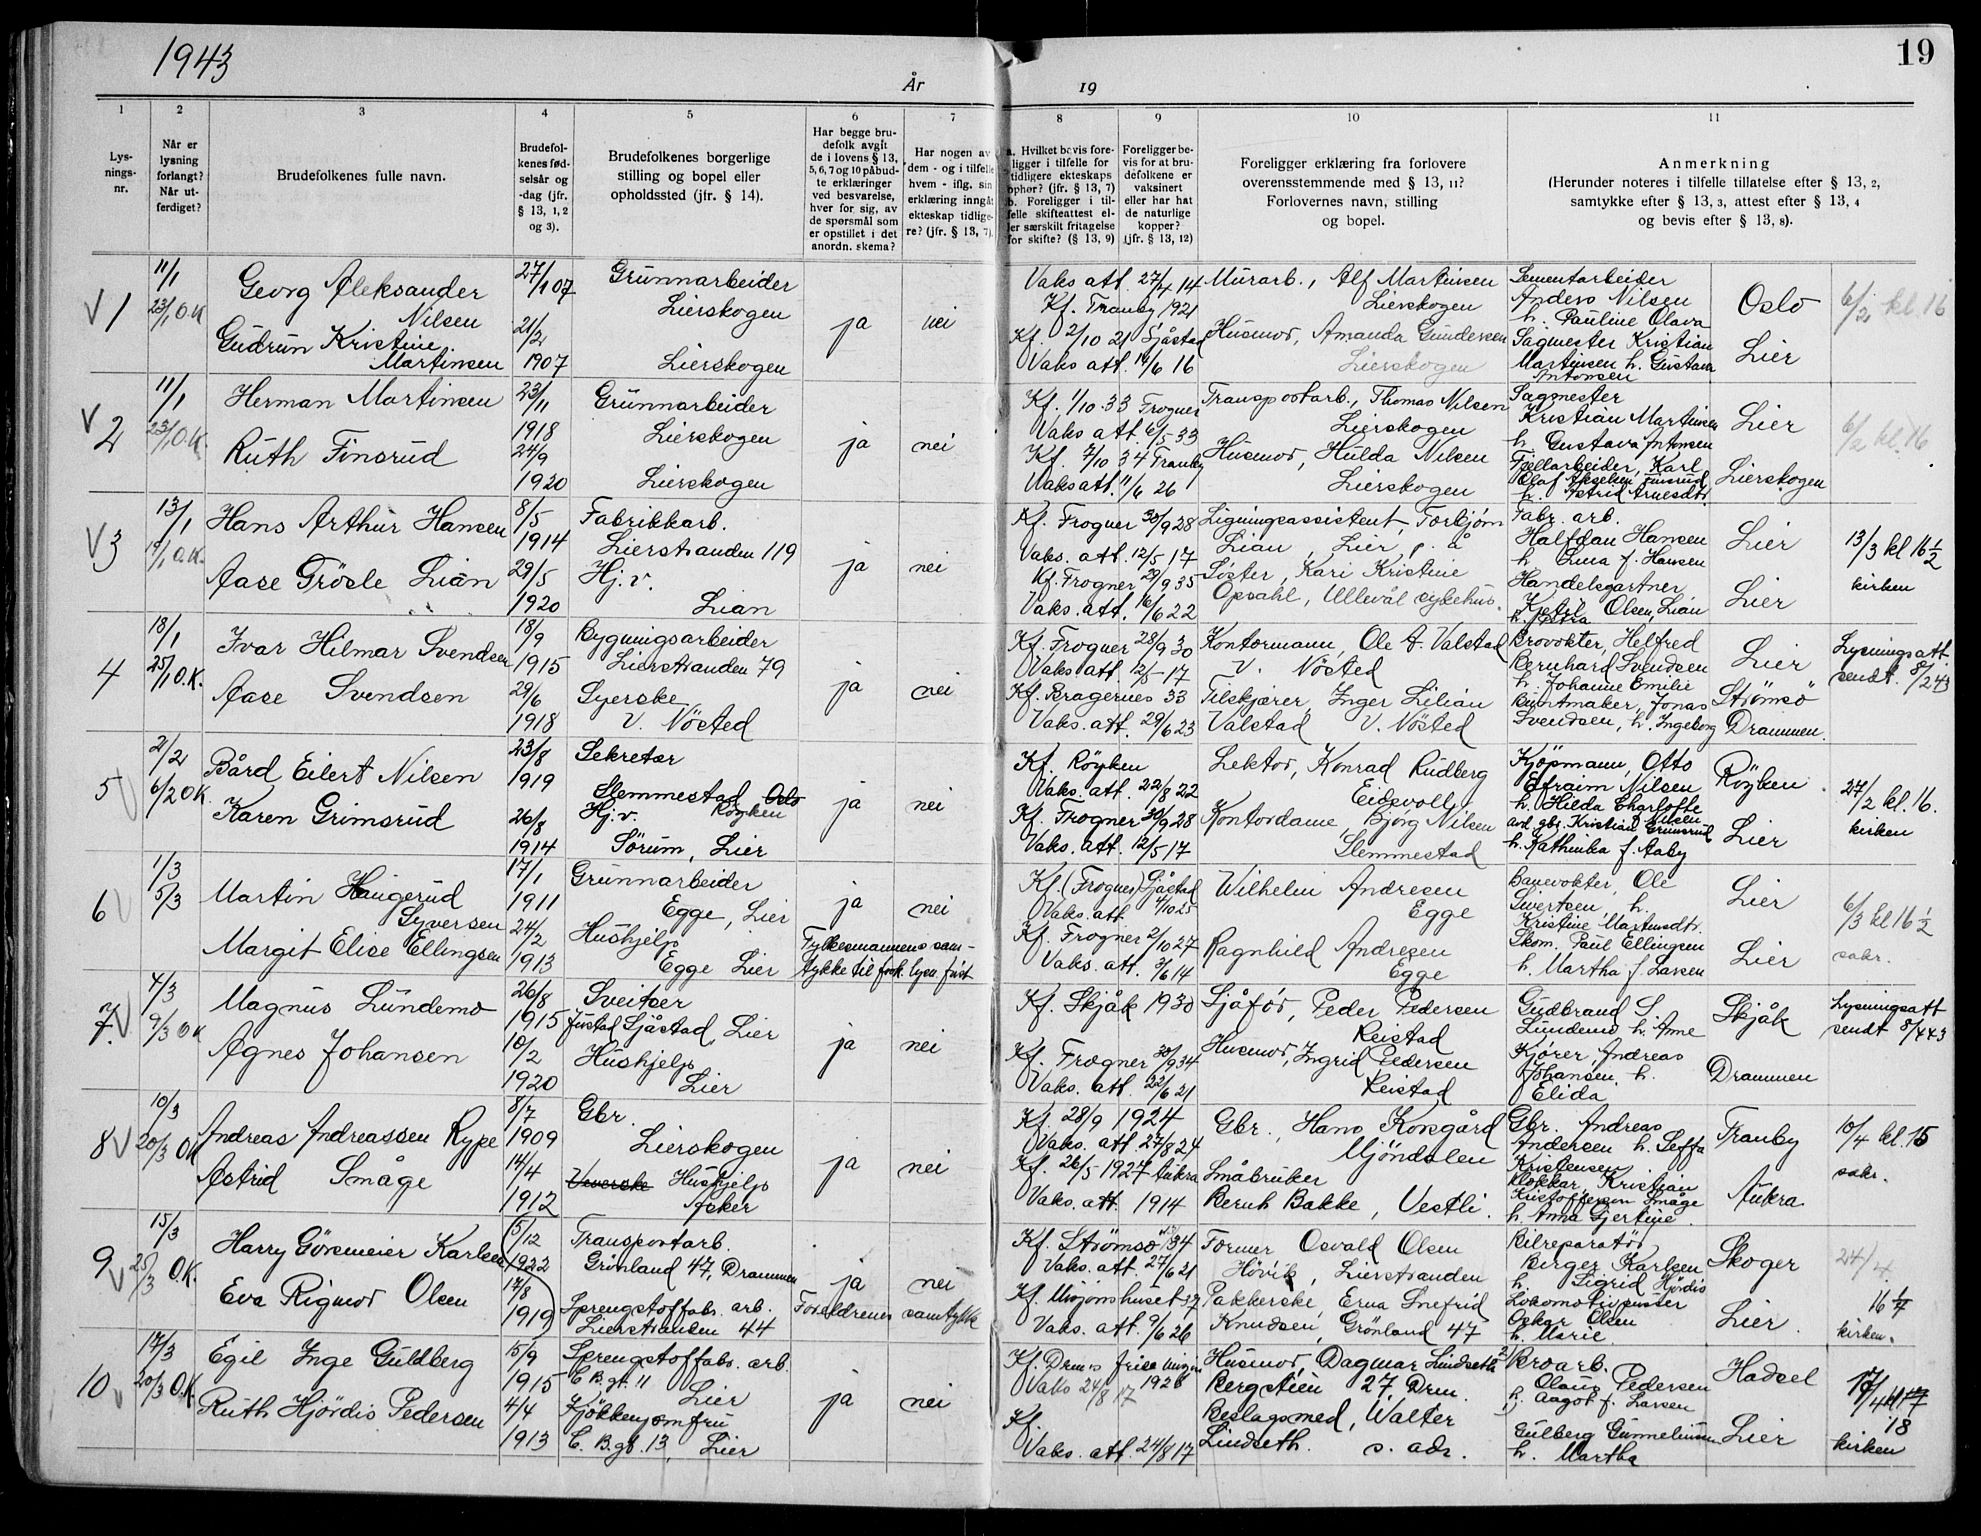 1943
År
19
19
1
2
3
4
5
6
7
8
9
10
11
Lys-
nings-
nr.
Når er
lysning
forlangt?
Når ut-
ferdiget?
Brudefolkenes fulle navn.
Brudefol-
kenes fød-
selsår og
-dag (jfr.
§ 13, 1, 2
og 3).
Brudefolkenes borgerlige
stilling og bopel eller
opholdssted (jfr. § 14).
Har begge bru-
defolk avgitt
de i lovens § 13,
5, 6, 7 og 10 påbud-
te erklæringer
ved besvarelse,
hver for sig, av
de spørsmål som
er opstillet i det
anordn. skema?
Har nogen av
dem - og i tilfelle
hvem - iflg. sin
erklæring inngått
ekteskap tidlige-
re? (jfr. § 13, 7).
a. Hvilket bevis fore-
ligger i tilfelle for
tidligere ekteskaps
ophør? (jfr. § 13, 7)
b. Foreligger i til-
felle skifteattest el-
ler særskilt fritagelse
for skifte? (§ 13, 9)
Foreligger be-
vis for at bru-
defolkene er
vaksinert
eller har hat
de naturlige
kopper?
(jfr. § 13, 12)
Foreligger erklæring fra forlovere
overensstemmende med § 13, 11?
Forlovernes navn, stilling
og bopel.
Anmerkning
(Herunder noteres i tilfelle tillatelse efter § 13, 2,
samtykke efter § 13, 3, attest efter § 13, 4
og bevis efter § 13, 8).
V 1
11/1
23/1 O.K
Georg Aleksander
Nilsen
Gudrun Kristine
Martinsen
27/1 07
21/2
1907
Grunnarbeider
Lierskogen
Lierskogen
ja
nei
Vaks att. 27/4 14
Kf. Tranby 1921
Kf. 2/10 21 Sjåstad
Vaks att. 14/6 16
Murarb., Alf Martinsen
Lierskogen
Husmor, Amanda Gundersen
Lierskogen
Sementarbeider
Anders Nilsen
h. Pauline Olava
Sagmester Kristian
Martinsen h. Gustava
Antonsen
Oslo
Lier
6/2 kl. 16
V 2
11/1
23/1 O.K.
Herman Martinsen
Ruth Finsrud
23/11
1918
24/9
1920
Grunnarbeider
Lierskogen
Lierskogen
ja
nei
Kf. 1/10 33 Frogner
Vaks att. 6/5 33
Kf. 7/10 34 Tranby
Vaks att. 11/6 26
Transportarb., Thomas Nilsen
Lierskogen
Husmor, Hulda Nilsen
Lierskogen
Sagmester
Kristian Martinsen
h. Gustava Antonsen
Fjellarbeider, Karl
Olaf Akselsen Finsrud
h. Astrid Arnesdtr.
Lier
Lierskogen
6/2 kl. 16
V 3
13/1
19/1 O.K.
Hans Arthur Hansen
Aase Tröste Lian
8/5
1914
29/5
1920
Fabrikkarb.
Lierstranden 119
Hj. v.
Lian
ja
nei
Kf. Frogner 30/9 28
Vaks. att. 12/5 17
Kf. Frogner 29/9 35
Vaks. att. 16/6 22
Ligningsassistent, Torbjørn
Lian, Lier, p. å
Søster, Kari Kristine
Opsahl, Ullevål sykehus.
Fabr. arb.
Halfdan Hansen
h. Lina f. Hansen
Handelsgartner
Kjetil Olsen, Lian
h. Petra
Lier
Lier
13/3 kl 16 1/2
kirken
4
18/1
25/1 O.K.
Ivar Hilmar Svendsen
Aase Svendsen
18/9
1915
29/6
1918
Bygningsarbeider
Lierstranden 79
Syerske
V. Nösted
ja
nei
Kf. Frogner 28/9 30
Vaks att 12/5 17
Kf. Bragernes 33
Vaks. att. 29/6 23
Kontormann, Ole A. Valstad
V. Nösted
Tilskjærer, Inger Lilian
Valstad V. Nösted
Brovokter, Helfred
Bernhard Svendsen
h. Johanne Emilie
Buntmaker, Jonas
Svendsen, h. Ingeborg
Lier
Strömsö
Drammen.
Lysningsatt.
sendt. 8/2 43
5
2/2
6/2 O.K.
Bård Eilert Nilsen
Karen Grimsrud
23/8
1919
26/8
1914
Sekretær
Slemmestad Oslo
Röyken
Hj. v.
Sörum, Lier
ja
nei
Kf. Röyken
Vaks. att. 22/8 22
Kf. Frogner 30/9 28
Vaks. att. 12/5 17
Lektor, Konrad Rudberg
Eidsvoll
Kontordame Bjørg Nilsen
Slemmestad
Kjöpmann, Otto
Efraim Nilsen
h. Hilda Charlotte
Nilsen
avd. gbr. Kristian Grimsrud
h. Kathinka f. Aaby
Röyken
Lier
27/2 kl. 16.
kirken
6
1/3
5/3
Martin Haugerud
Syversen
Margit Elise Ellingsen
17/1
1911
24/2
1913
Grunnarbeider
Egge, Lier
Hushjelp
Egge Lier
ja
nei
Fylkesmannens sam-
tykke til fork. lysn. frist
Kf. (Frogner) Sjåstad
Vaks. att. 4/10 25
Kf. Frogner 2/10 27
Vaks. att. 3/6 14
Wilhelm Andresen
Egge
Ragnhild Andresen
Egge
Banevokter, Ole
Sivertsen, h.
Kristine Martinsdtr.
Skom. Paul Ellingsen
h. Martha f. Larsen
Lier
Lier
6/3 kl 16 1/2
sakr.
7. V
4/3
9/3 OK
Magnus Lundemo
Agnes Johansen
26/8
1915
10/2
1920
Sveitser
Justad Sjåstad, Lier
Hushjelp
Lier
ja
nei
Kf. Skjåk 1930
Kf. Frogner 30/9 34
Vaks. att. 22/6 21
Sjåfør, Peder Pedersen
Reistad
Husmor, Ingrid Pedersen
Reistad
Gudbrand S.
Lundemo h. Anne
Kjörer, Andreas
Johansen, h.
Elida
Skjåk
Drammen
Lysningsatt
sendt 8/4 43
8 V
10/3
20/3 OK
Andreas Andreassen Rype
Astrid Småge
8/7
1909
14/4
1912
Gbr.
Lierskogen
Veverske Hushjelp
Asker
ja
nei
Kf. 28/9 1924
Vaks. att. 27/8 24
Kf. 26/5 1927 Aukra
Vaks. att. 1914
Gbr., Hans Korsgård
Mjöndalen
Småbruker
Bernh Bakke, Vestli.
Gbr. Andreas
Andersen h. Seffa
Kristensen
Klokkar, Kristian
Kristoffersen Småge
h. Anna Gjertine
Tranby
Aukra
10/4 kl. 15
sakr.
9 V
15/3
25/3 O.K.
Harry Görsmeier Karlsen
Eva Rigmor Olsen
5/12
1922
17/8
1919
Transportarb.
Grönland 47, Drammen
Sprengstoffabr. arb.
Lierstranden 44
ja
nei
Foreldrenes samtykk
Kf. Strömsö 34
Vaks. att. 27/6 21
Kf. Misjonshuset 37
Vaks. att. 9/6 26
Former Osvald Olsen
Hövik, Lierstranden
Pakkerske, Erna Snefrid
Knudsen, Grönland 47
Bilreparatör
Birger Karlsen
h. Sigrid Hjördis
Lokomotivpusser
Oskar Olsen
h. Marie
Skoger
Lier.
24/4.
16 1/4
kirken.
10 V
17/3
20/3 O.K.
Egil Inge Guldberg
Ruth Hjördis Pedersen
15/9
1915
4/4
1913
Sprengstoffabr. arb.
C. B. gt. 11
Lier
Kjökkenjomfru
C. B. gt. 13, Lier
ja
nei
Kf. Drms frie misjon
Vaks 24/8 17 1928
Kf.
Vaks. att. 24/8 17
Husmor, Dagmar Lindseth
Bergstien 27, Drm.
Beslagsmed, Walter
Lindseth. s. adr.
Broarb.
Olaus Pedersen
h. Aagot f. Larsen
Gulberg Gunneliussen
h. Martha
Hadsel
Lier
17/4 kl 17
18
kirken